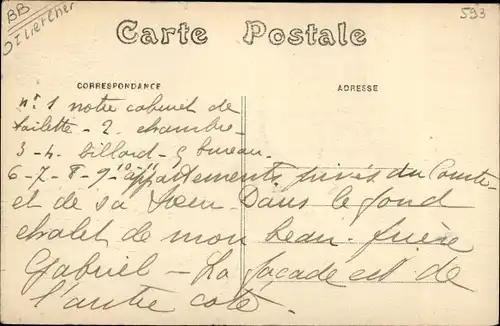 BB
593
Carte Postale
CORRESPONDANCE
ADRESSE
n° 1 notre cabinet de
toilette - 2. chambre -
3 - 4. billard - 5 bureau.
6 - 7 - 8 - 9 - appartements privés du Comte
et de sa Sœur - Dans le fond
chalet de mon beau-frère
Gabriel - La façade est de
l'autre coté.